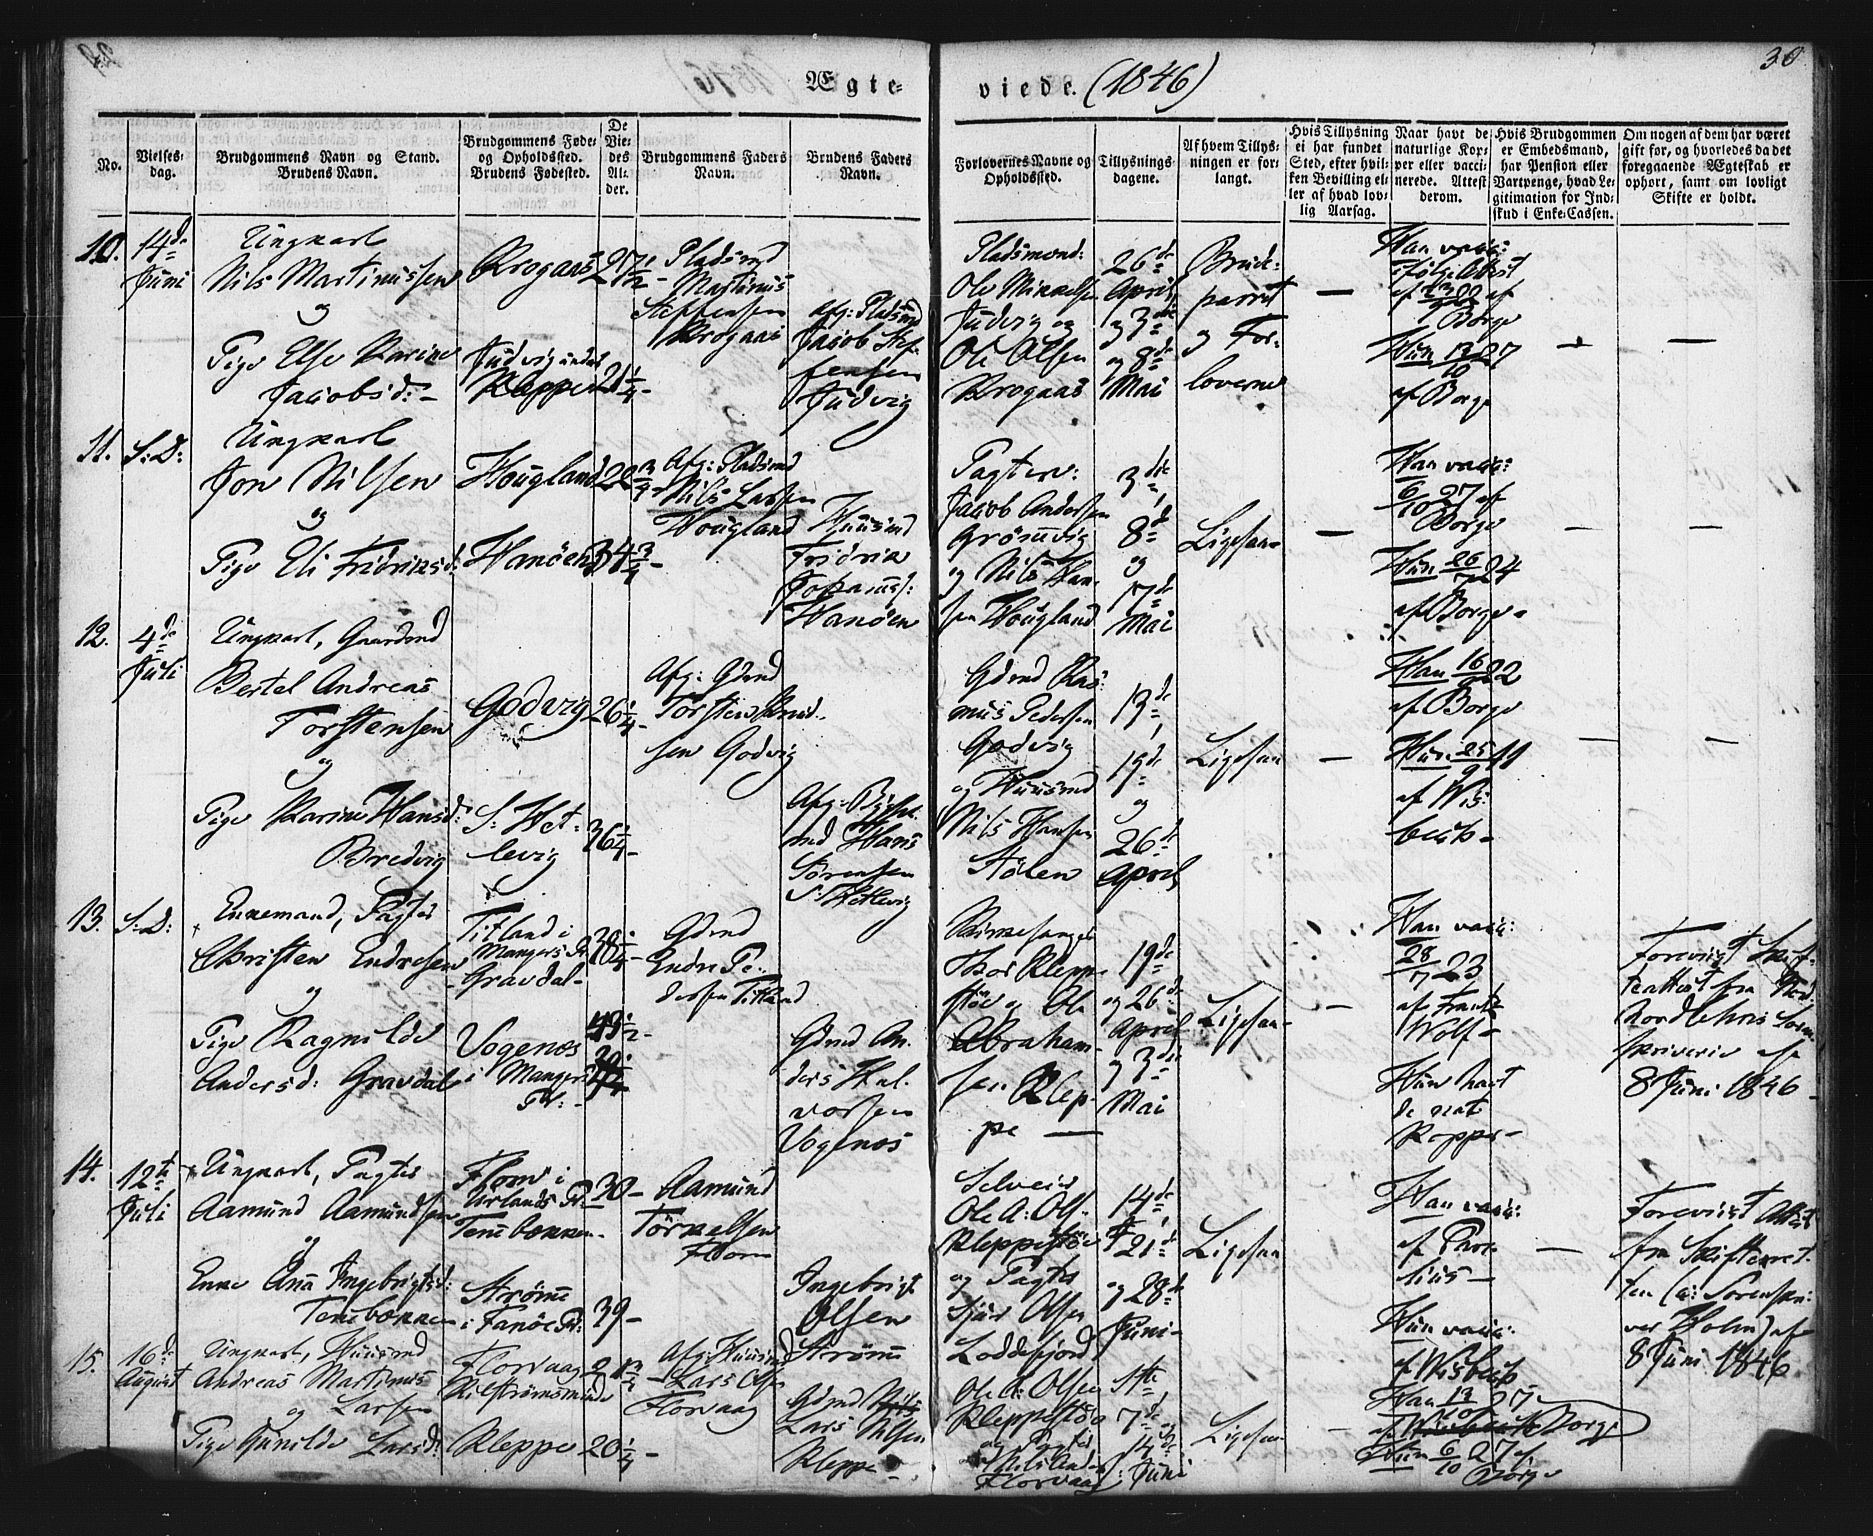 30
Ægte-
viede. (1846)
No.
Vielses-
dag.
Brudgommens Navn og Stand.
Brudens Navn.
Brudgommens Føde-
og Opholdssted.
Brudens Fødested.
De
Vie-
des
Al-
der.
Brudgommens Faders
Navn.
Brudens Faders
Navn.
Forlovernes Navne og
Opholdssted.
Tillysnings-
dagene.
Af hvem Tillys-
ningen er for-
langt.
Hvis Tillysning
ei har fundet
Sted, efter hvil-
ken Bevilling el-
ler af hvad lov-
lig Aarsag.
Naar havt de
naturlige Kop-
per eller vacci-
nerede. Attest
derom.
Hvis Brudgommen
er Embedsmand,
har Pension eller
Vartpenge, hvad Le-
gitimation for Ind-
skud i Enke-Cassen.
Om nogen af dem har været
gift for, og hvorledes da det
foregaaende Ægteskab er
ophørt, samt om lovligt
Skifte er holdt.
10.
14de
Juni
Ungkarl
Nils Martinussen
og
Pige Else Karine
Jacobsd:
Krogaas
Judvig
Kleppe
27 1/2
21 1/4
Pladsmd
Martinus
Steffensen
Krogaas
Afg: Pladsmd
Jacob Stef-
fensen
Judvig
Pladsmænd:
Ole Mikkelsen
Judvig og
Ole Olsen
Krogaas
26de
April,
3die
og 8de
Mai
Brude-
parret
og For-
loverne
—
Han vacc:
ifølge Attest
af
Borge
Hun 13/10 27
af Borge
—
—
11.
S: D:
Ungkarl
Jon Nilsen
og
Pige Eli Fridriksd:
Hougland
Hanöen
22 3/4
34 3/4
Afg: Pladsmd
Nils Larsen
Hougland
Huusmd
Fridrik
Johannes:
Hanöen
Pagter:
Jacob Andersen
Grönvig
og Nils Han-
sen Hougland
3die,
8de
og
17de
Mai
Ligesaa
—
Han vacc:
6/10 27 af
Borge
Hun 26/7 24
af Borge
—
—
12.
4de
Juli
Ungkarl, Gaardmd
Bertel Andreas
Torstensen
og
Pige Karine Hansd:
Bredvig
Godvig
S: Het-
levig
26 1/4
36 1/4
Afg: Gdmd
Torsten Knud-
sen Godvig
Afg:
md Hans
Sörensen
S: Hetlevig
Gdmd Ras-
mus Pedersen
Godvig
og Huusmd
Nils Hansen
Stölen
13de,
19de
og
26de
April
Ligesaa
—
Han 16/9 22
af Borge
Hun 25/9 11
af Wis-
beck
—
—
13.
S: D:
Enkemand, Pagter
Christen Endresen
og
Pige Ragnilde
Andersd: Gravdal
Titland i
Mangers Pr
Gravdal
Vogenos
i Mangers
Pr:
38 1/4
Gdmd
Endre Pe-
dersen Titland
Gdmd An-
ders Hal-
vorsen
Vogenos
Kirkesanger
Thor Kleppe-
stöe og Ole
Abraham-
sen Klep-
pe —
19de
og 26de
April
og 3die
Mai
Ligesaa
—
Han vacc:
28/7 23
af Frantz
Wolf
Hun havt
de nat:
Kopper
Foreviist Skif-
teattest fra Nord-
hordlehns Soren-
skriverie af
8 Juni 1846
14.
12te
Juli
Ungkarl, Pagter
Aamund Aamundsen
og
Enke Ana Ingebrigtsd:
Tennebakken
Flom i
Urlands Pr
Tennebakken
Strömme
i Fanöe Pr:
30
39
Aamund
Törkelsen
Flom
Ingebrigt
Olsen
Strömme
Selveier
Ole A: Ols-
Kleppestöe
og Pagter
Sjur Olsen
Loddefjord
14de,
21de
og 28de
Juni
Ligesaa
Han vacc:
af
Hun vacc:
af Wisbeck
—
Foreviist Attest
fra Skifteret-
ten (a: Sorenskri-
ver Holm) af
8 Juni 1846
15.
16de
August
Ungkarl, Huusmd
Andreas Martinus
og Larsen
Pige Gunilde Larsd:
Florvaag
Kilströmsmund
Kleppe
20 1/4
Afg: Huusmd
Lars Olsen
Florvaag
Gdmd
Lars Nilsen
Kleppe
Ole A: Olsen
Kleppestöe
og
Nils Anders:
Florvaag
1ste,
7de og
14de
Juni
Ligesaa
—
Han 13/10 27
af Borge
Hun 6/10 27 af
Borge